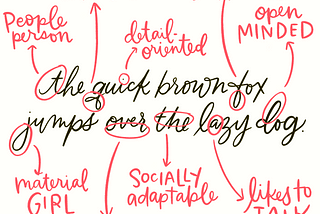 People
person
detail-
oriented
open
MINDED
the quick brown fox
jumps over the lazy dog.
material
GIRL
SOCIALLY
adaptable
likes to
TALK